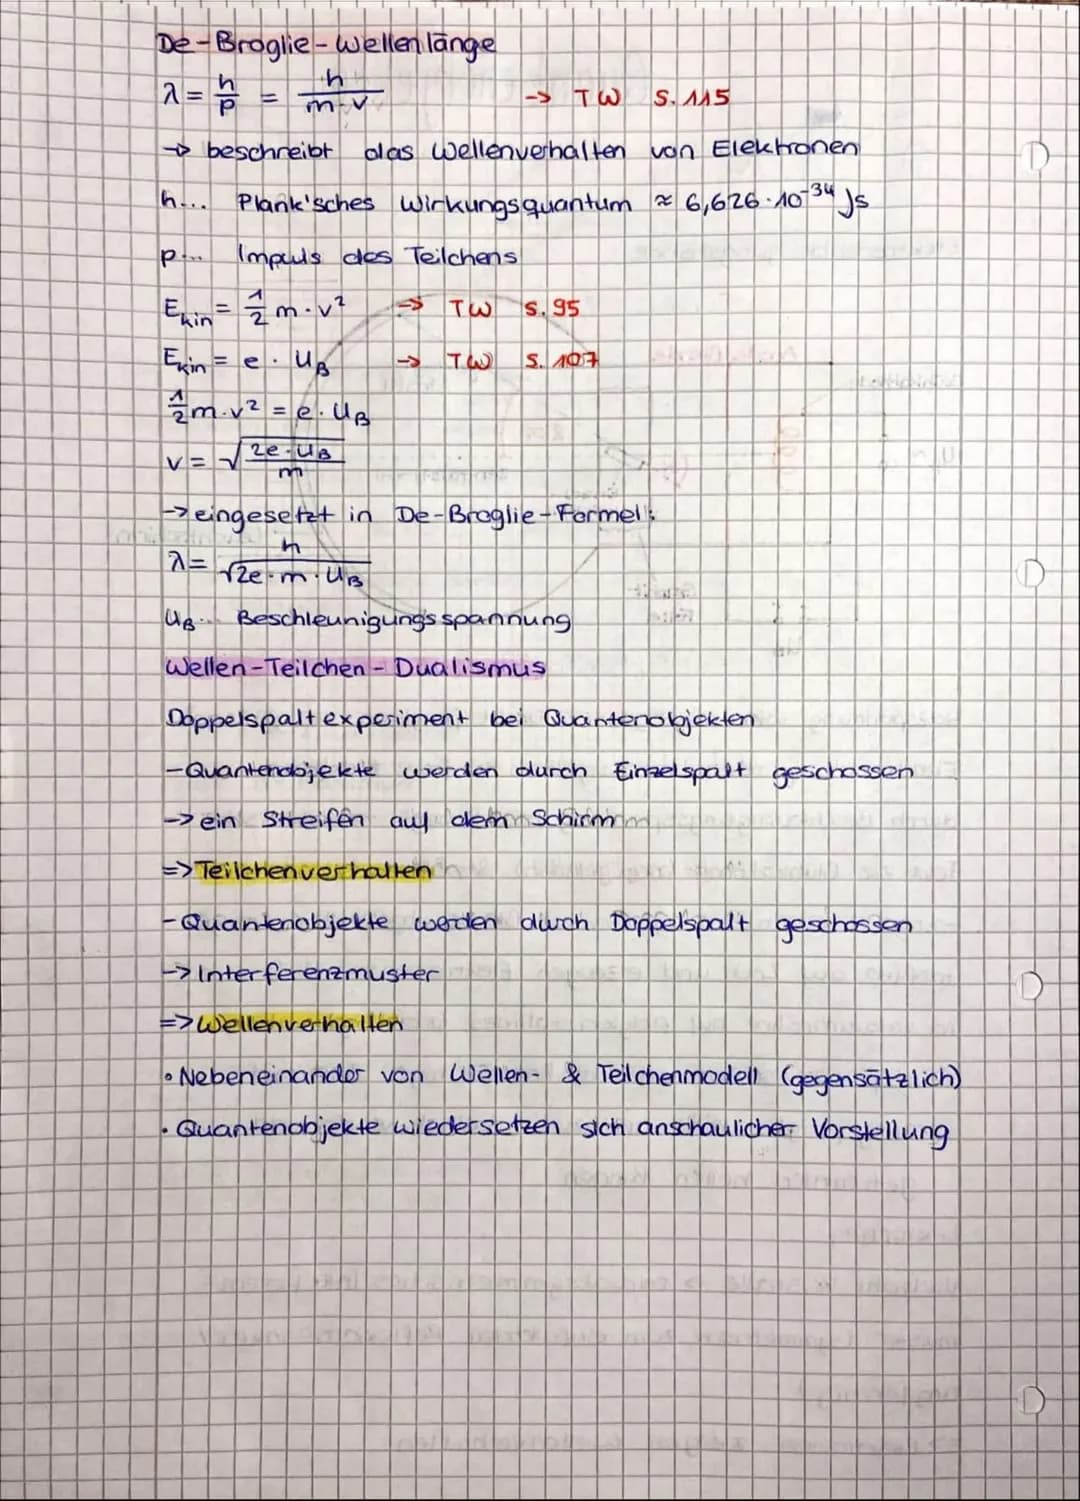 De-Broglie-Wellenlänge
λ = h/p = h/(m·v) -> TW S. 115
-> beschreibt das Wellenverhalten von Elektronen
h... Plank'sches Wirkungsquantum ≈ 6,626·10⁻³⁴ Js
p... Impuls des Teilchens
E_kin = 1/2 m·v² => TW S. 95
E_kin = e · U_B -> TW S. 107
1/2 m·v² = e·U_B
v = √(2e·U_B/m)
-> eingesetzt in De-Broglie-Formel:
λ = h/√(2e·m·U_B)
U_B... Beschleunigungsspannung
Wellen-Teilchen-Dualismus
Doppelspaltexperiment bei Quantenobjekten
-Quantenobjekte werden durch Einzelspalt geschossen
-> ein Streifen auf dem Schirm
=> Teilchenverhalten
-Quantenobjekte werden durch Doppelspalt geschossen
-> Interferenzmuster
=> Wellenverhalten
• Nebeneinander von Wellen- & Teilchenmodell (gegensätzlich)
• Quantenobjekte wiedersetzen sich anschaulicher Vorstellung